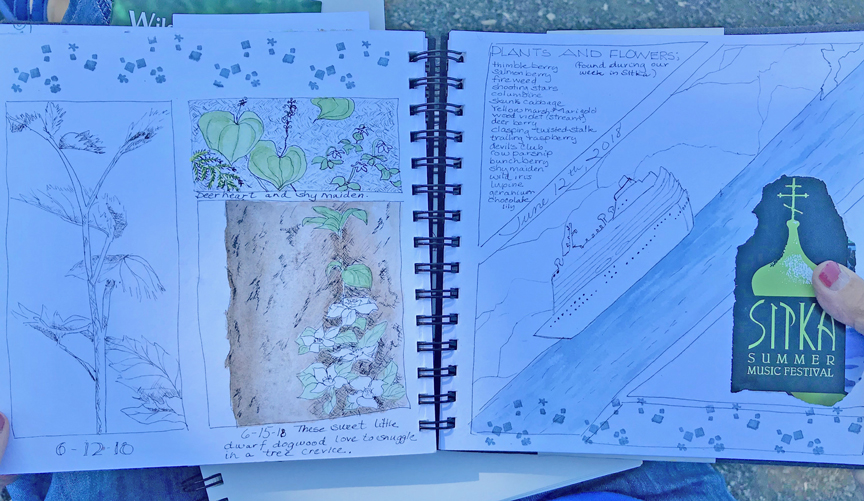 Wil
Deerheart and shy maiden.
6-12-18
6-15-18 These sweet little
dwarf dogwood love to snuggle
in a tree crevice.
PLANTS AND FLOWERS:
(Found during our
week in Sitka.)
thimble berry
salmon berry
fireweed
shooting stars
columbine
skunk cabbage
Yellow marsh Marigold
wood violet (stream)
deer berry
clasping twisted-stalk
trailing raspberry
devil's club
cow parsnip
bunchberry
shy maiden
wild iris
lupine
geranium
chocolate
lily
June 12th, 2018
SITKA
SUMMER
MUSIC FESTIVAL